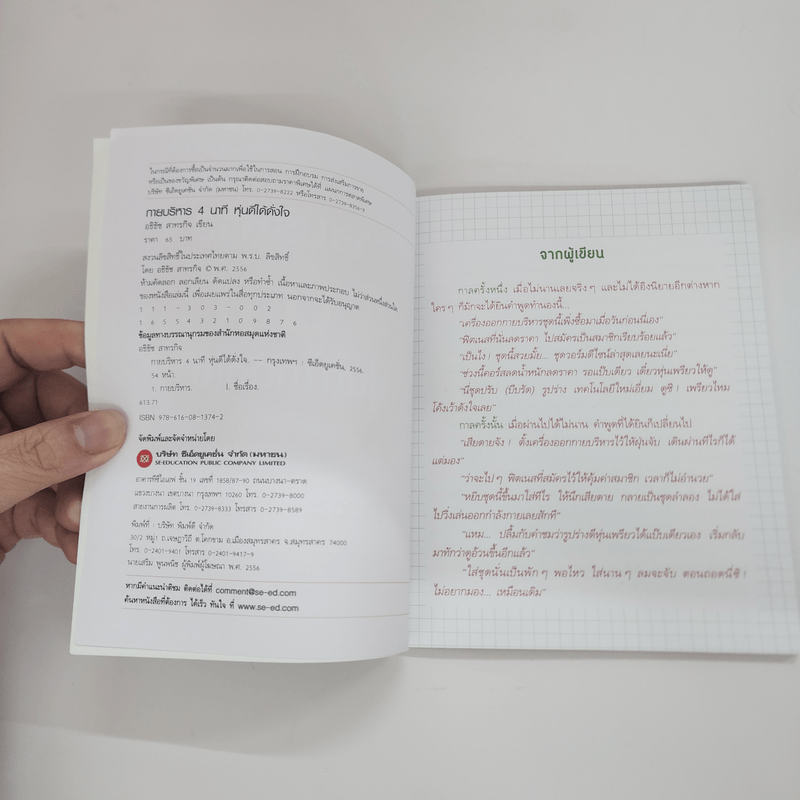 ในกรณีที่ต้องการซื้อเป็นจำนวนมากเพื่อใช้ในการสอน การฝึกอบรม การส่งเสริมการขาย
หรือเป็นของขวัญพิเศษ เป็นต้น กรุณาติดต่อสอบถามราคาพิเศษได้ที่ แผนกการตลาดพิเศษ
บริษัท ซีเอ็ดยูเคชั่น จำกัด (มหาชน) โทร. 0-2739-8222 หรือโทรสาร 0-2739-8356-9
กายบริหาร 4 นาที หุ่นดีได้ดั่งใจ
อธิธัช สาทรกิจ เขียน
ราคา 65 บาท
สงวนลิขสิทธิ์ในประเทศไทยตาม พ.ร.บ. ลิขสิทธิ์
โดย อธิธัช สาทรกิจ © พ.ศ. 2556
ห้ามคัดลอก ลอกเลียน ดัดแปลง หรือทำซ้ำ เนื้อหาและภาพประกอบ ไม่ว่าส่วนหนึ่งส่วนใด
ของหนังสือเล่มนี้ เพื่อเผยแพร่ในสื่อทุกประเภท นอกจากจะได้รับอนุญาต
1 1 1 - 3 0 3 - 0 0 2
1 6 5 5 4 3 2 1 0 9 8 7 6
ข้อมูลทางบรรณานุกรมของสำนักหอสมุดแห่งชาติ
อธิธัช สาทรกิจ
กายบริหาร 4 นาที หุ่นดีได้ดั่งใจ. -- กรุงเทพฯ : ซีเอ็ดยูเคชั่น, 2556.
54 หน้า.
1. กายบริหาร. I. ชื่อเรื่อง.
613.71
ISBN 978-616-08-1374-2
จัดพิมพ์และจัดจำหน่ายโดย
บริษัท ซีเอ็ดยูเคชั่น จำกัด (มหาชน)
SE-EDUCATION PUBLIC COMPANY LIMITED
อาคารทีซีไอเอฟ ชั้น 19 เลขที่ 1858/87-90 ถนนบางนา-ตราด
แขวงบางนา เขตบางนา กรุงเทพฯ 10260 โทร. 0-2739-8000
สายงานการผลิต โทร. 0-2739-8333 โทรสาร 0-2739-8589
พิมพ์ที่ : บริษัท พิมพ์ดี จำกัด
30/2 หมู่1 ถ.เจษฎาวิถี ต.โคกขาม อ.เมืองสมุทรสาคร จ.สมุทรสาคร 74000
โทร. 0-2401-9401 โทรสาร 0-2401-9417-9
นายเสริม พูนพนิช ผู้พิมพ์ผู้โฆษณา พ.ศ. 2556
หากมีคำแนะนำติชม ติดต่อได้ที่ comment@se-ed.com
ค้นหาหนังสือที่ต้องการ ได้เร็ว ทันใจ ที่ www.se-ed.com
จากผู้เขียน
กาลครั้งหนึ่ง เมื่อไม่นานเลยจริงๆ และไม่ได้อิงนิยายอีกต่างหาก
ใครๆ ก็มักจะได้ยินคำพูดทำนองนี้...
"เครื่องออกกายบริหารชุดนี้เพิ่งซื้อมาเมื่อวันก่อนนี่เอง"
"ฟิตเนสที่นั่นลดราคา ไปสมัครเป็นสมาชิกเรียบร้อยแล้ว"
"เป็นไง! ชุดนี้สวยมั้ย... ชุดวอร์มดีไซน์ล่าสุดเลยนะเนี่ย"
"ช่วงนี้คอร์สลดน้ำหนักลดราคา รอแป๊บเดียว เดี๋ยวหุ่นเพรียวให้ดู"
"นี่ชุดปรับ (บีบรัด) รูปร่าง เทคโนโลยีใหม่เอี่ยม ดูซิ! เพรียวไหม
โค้งเว้าดังใจเลย"
กาลครั้งนั้น เมื่อผ่านไปได้ไม่นาน คำพูดที่ได้ยินก็เปลี่ยนไป
"เสียดายจัง! ตั้งเครื่องออกกายบริหารไว้ให้ฝุ่นจับ เดินผ่านทีไรก็ได้
แต่มอง"
"ว่าจะไปๆ ฟิตเนสที่สมัครไว้ให้คุ้มค่าสมาชิก เวลาก็ไม่อำนวย"
"หยิบชุดนี้ขึ้นมาใส่ทีไร ให้นึกเสียดาย กลายเป็นชุดลำลอง ไม่ได้ใส่
ไปวิ่งเล่นออกกำลังกายเลยสักที"
"แหม... ปลื้มกับคำชมว่ารูปร่างดีหุ่นเพรียวได้แป๊บเดียวเอง เริ่มกลับ
มาทักว่าดูอ้วนขึ้นอีกแล้ว"
"ใส่ชุดนั่นเป็นพักๆ พอไหว ใส่นานๆ ลมจะจับ ตอนถอดนี่ซิ!
ไม่อยากมอง... เหมือนเดิม"